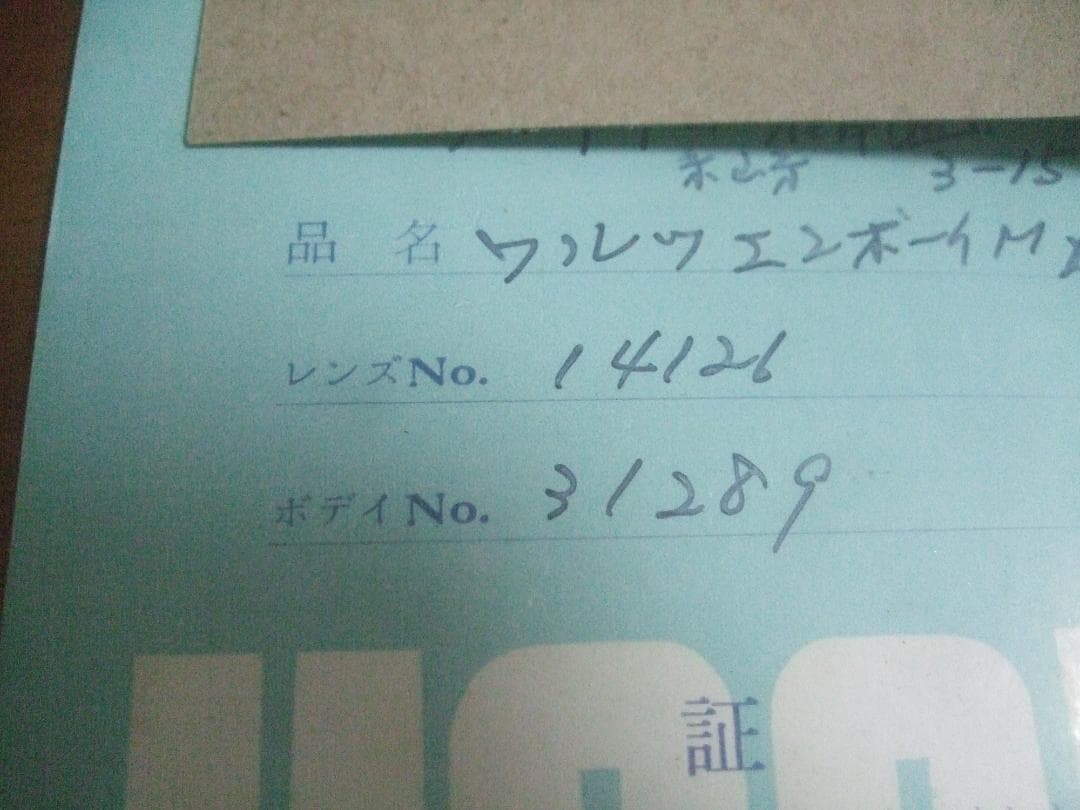 3-15
品名 ワルツエンボーイM
レンズNo. 14126
ボディNo. 31289
証